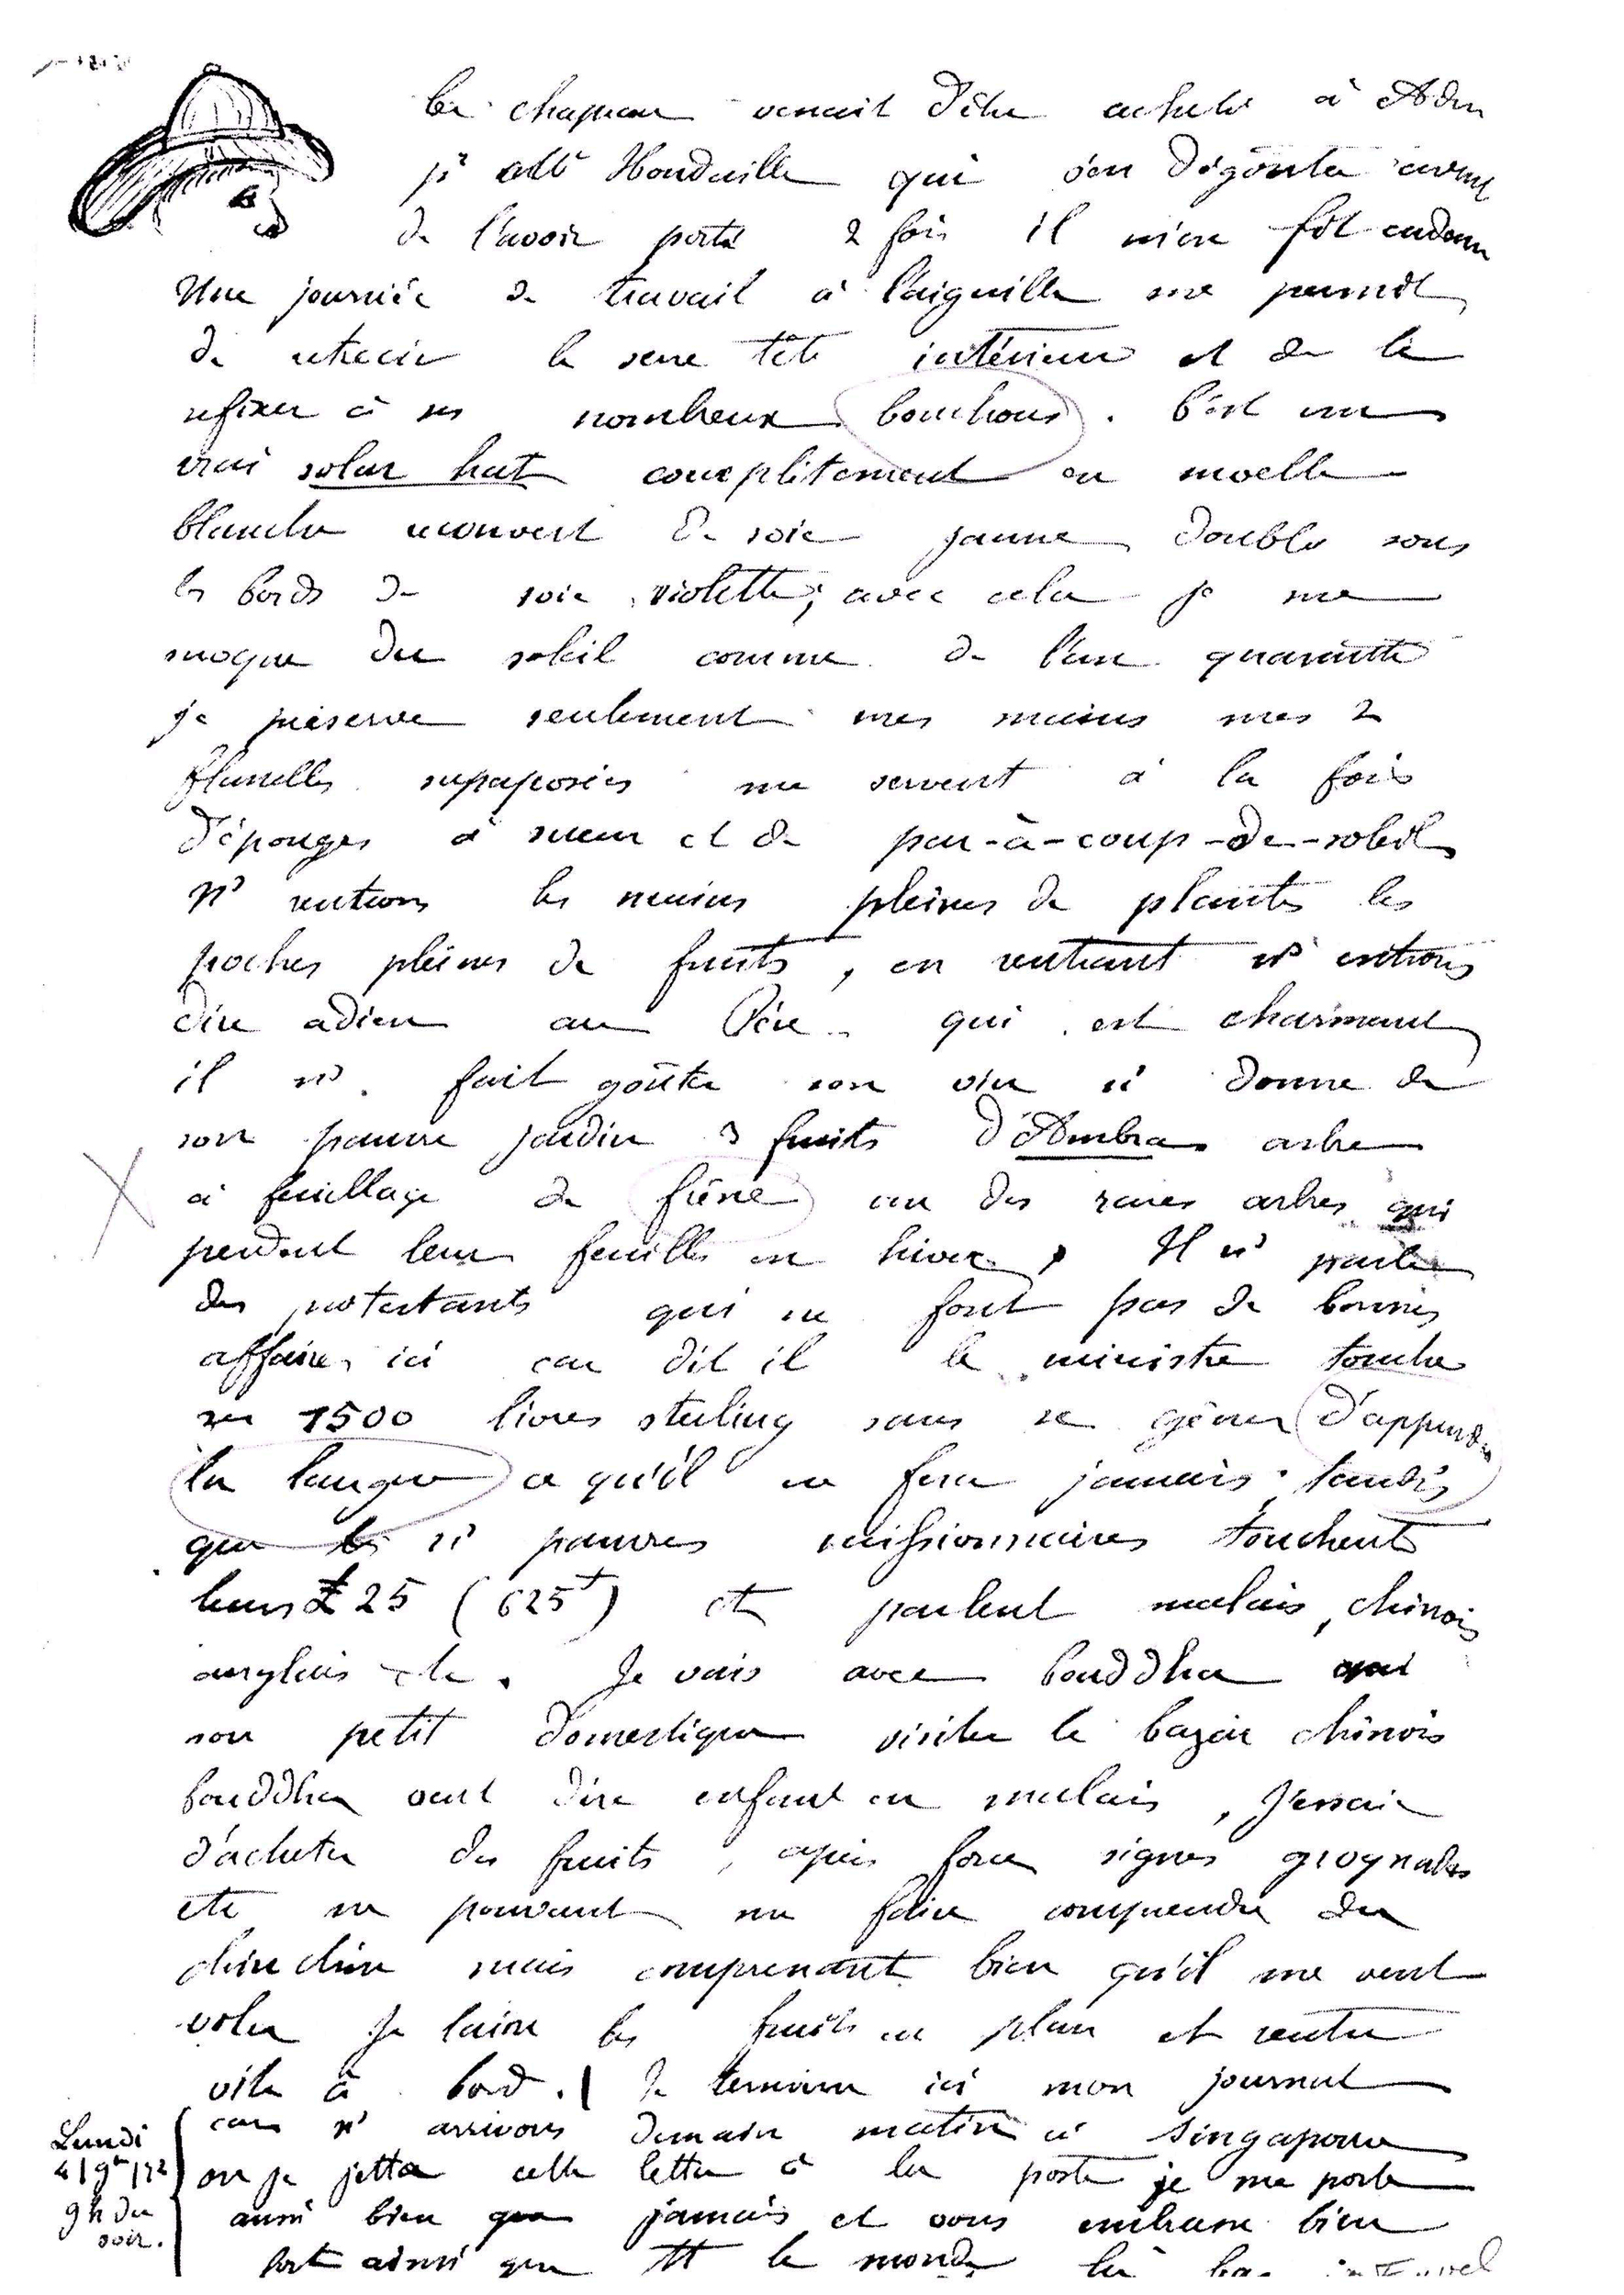 Ce chapeau venait d'être acheté à Aden
pr Alb Houdaille qui s'en dégoûta avant
de l'avoir porté 2 fois il m'en fit cadeau
Une journée de travail à l'aiguille me permit
de retrecir le serre tête intérieur et de le
refixer à ses nombreux bouchons. C'est un
vrai solar hat complètement en moelle
blanche recouvert de soie jaune doublé sous
les bords de soie violette; avec cela je me
moque du soleil comme de l'an quarante
je préserve seulement mes mains mes 2
flanelles superposées me servent à la fois
d'éponges à sueur et de par-à-coup-de-soleil
Ns rentrons les mains pleines de plantes les
poches pleines de fruits, en rentrant ns entrons
dire adieu au Père qui est charmant
il ns fait goûter son vin ns donne de
son pauvre jardin 3 fruits d'Ambra arbre
à feuillage de frêne un des rares arbres qui
perdent leur feuilles en hiver, Il ns parle
des protestants qui ne font pas de bonnes
affaires ici car dit il le ministre touche
ses 1500 livres sterling sans se gêner d'apprendre
la langue ce qu'il ne fera jamais tandis
que ns pauvres missionnaires touchent
leurs £ 25 (625f) et parlent malais, chinois
anglais etc. Je vais avec bouddha
son petit domestique visiter le bazar chinois
bouddha veut dire enfant en malais, J'essaie
d'acheter des fruits, après force signes grognades
etc ne pouvant me faire comprendre du
chinchin mais comprenant bien qu'il me veut
voler je laisse les fruits en plan et rentre
vite à bord. | Je termine ici mon journal
car ns arrivons demain matin à Singapoure
où je jette cette lettre à la poste je me porte
aussi bien que jamais et vous embrasse bien
fort ainsi que tt le monde là bas
Lundi
4/9bre/72
9h du
soir.